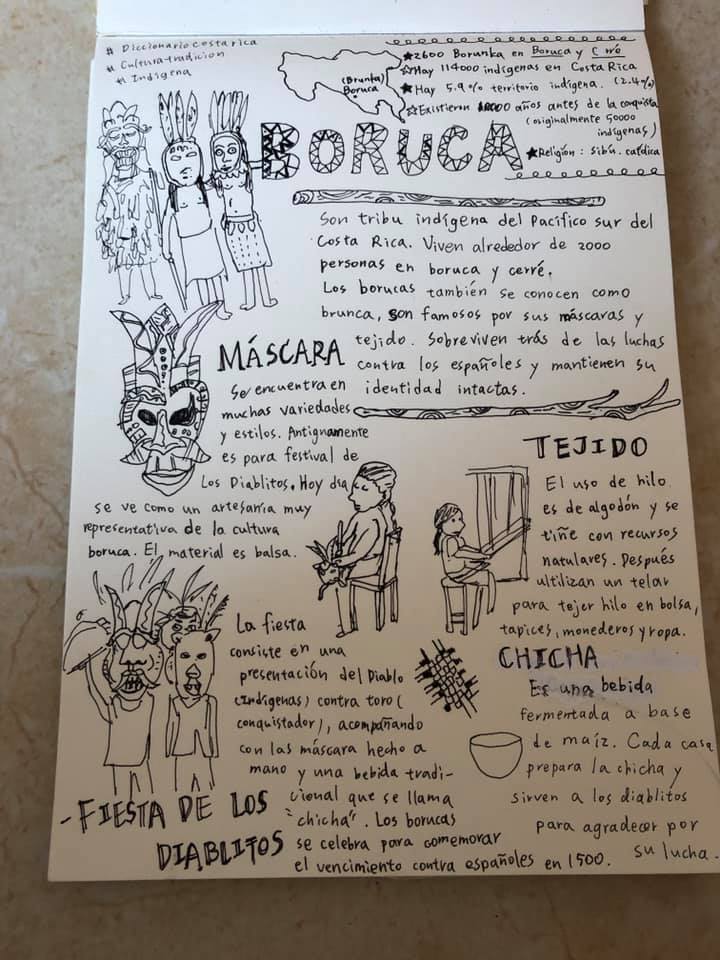 # Diccionario Costarica
# Cultura-tradicion
# Indígena
(Brunka)
Boruca
★2600 Borunka en Boruca y Crré
☆Hay 114000 indígenas en Costa Rica
★Hay 5.9% territorio indígena. (2.4%)
☆Existieron años antes de la conquista
(originalmente 50000
indígenas)
★Religión : Sibú. católica
BORUCA
Son tribu indígena del Pacífico sur del
Costa Rica. Viven alrededor de 2000
personas en boruca y cerré.
Los borucas también se conocen como
brunca, son famosos por sus máscaras y
tejido. Sobreviven trás de las luchas
contra los españoles y mantienen su
identidad intactas.
MÁSCARA
Se encuentra en
muchas variedades
y estilos. Antignamente
es para festival de
Los Diablitos. Hoy dia
se ve como un artesanía muy
representativa de la cultura
boruca. El material es balsa.
TEJIDO
El uso de hilo
es de algodón y se
tiñe con recursos
natulares. Después
ultilizan un telar
para tejer hilo en bolsa,
tapices, monederos y ropa.
La fiesta
consiste en una
presentación del Diablo
(indígenas) contra toro (
conquistador), acompañando
con las máscara hecho a
mano y una bebida tradi-
cional que se llama
"chicha". Los borucas
se celebra para comemorar
el vencimiento contra españoles en 1500.
-FIESTA DE LOS
DIABLITOS
CHICHA
Es una bebida
fermentada a base
de maíz. Cada casa
prepara la chicha y
sirven a los diablitos
para agradecer por
su lucha.